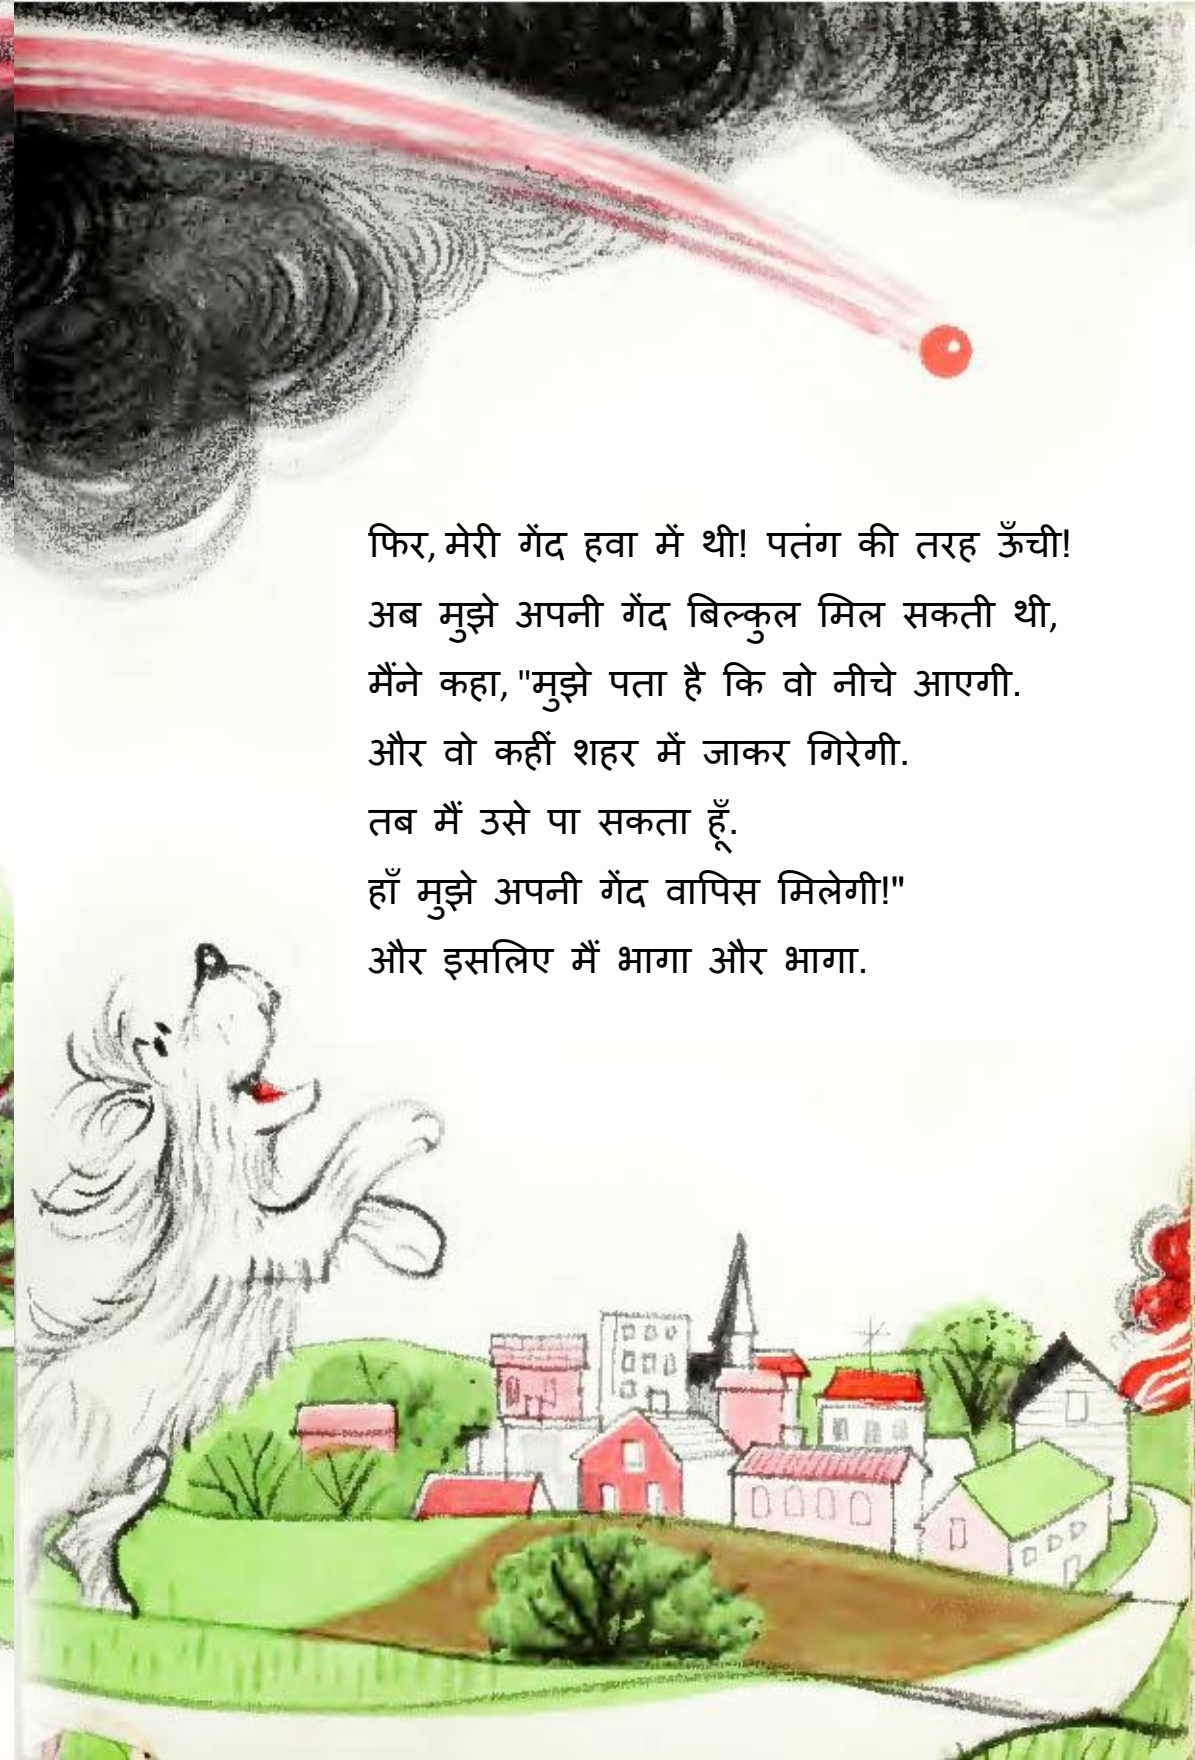 फिर, मेरी गेंद हवा में थी! पतंग की तरह ऊँची!
अब मुझे अपनी गेंद बिल्कुल मिल सकती थी,
मैंने कहा, "मुझे पता है कि वो नीचे आएगी.
और वो कहीं शहर में जाकर गिरेगी.
तब मैं उसे पा सकता हूँ.
हाँ मुझे अपनी गेंद वापिस मिलेगी!"
और इसलिए मैं भागा और भागा.